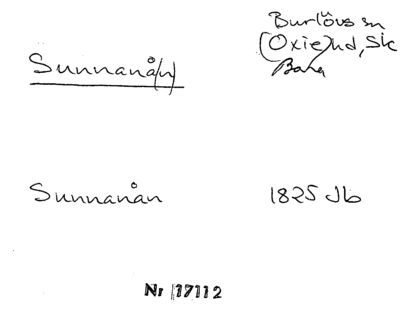 Burlövs sn
Sunnanå(n) (Oxie)hd, Sk
Bara
Sunnanån 1825 Jb
Nr 17112